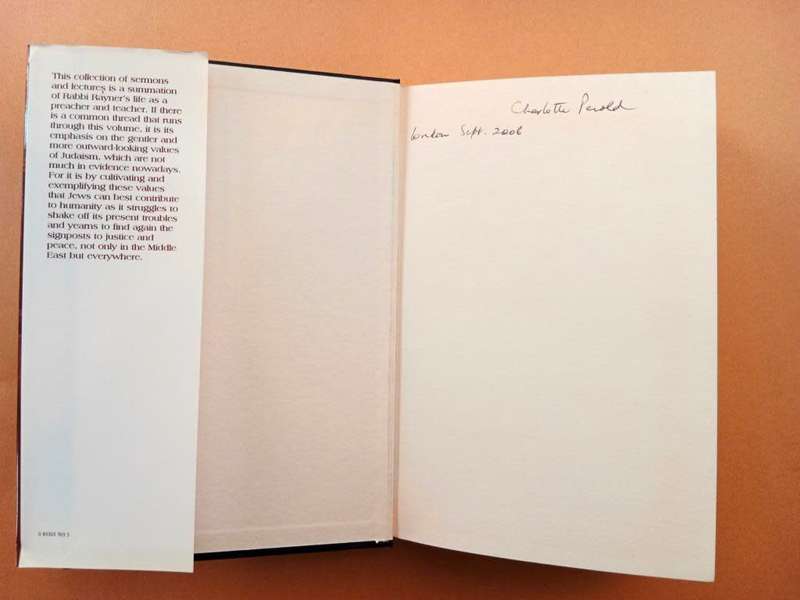 This collection of sermons
and lectures is a summation
of Rabbi Rayner's life as a
preacher and teacher. If there
is a common thread that runs
through this volume, it is its
emphasis on the gentler and
more outward-looking values
of Judaism, which are not
much in evidence nowadays.
For it is by cultivating and
exemplifying these values
that Jews can best contribute
to humanity as it struggles to
shake off its present troubles
and yearns to find again the
signposts to justice and
peace, not only in the Middle
East but everywhere.
Charlotte Perold
London Sept. 2006